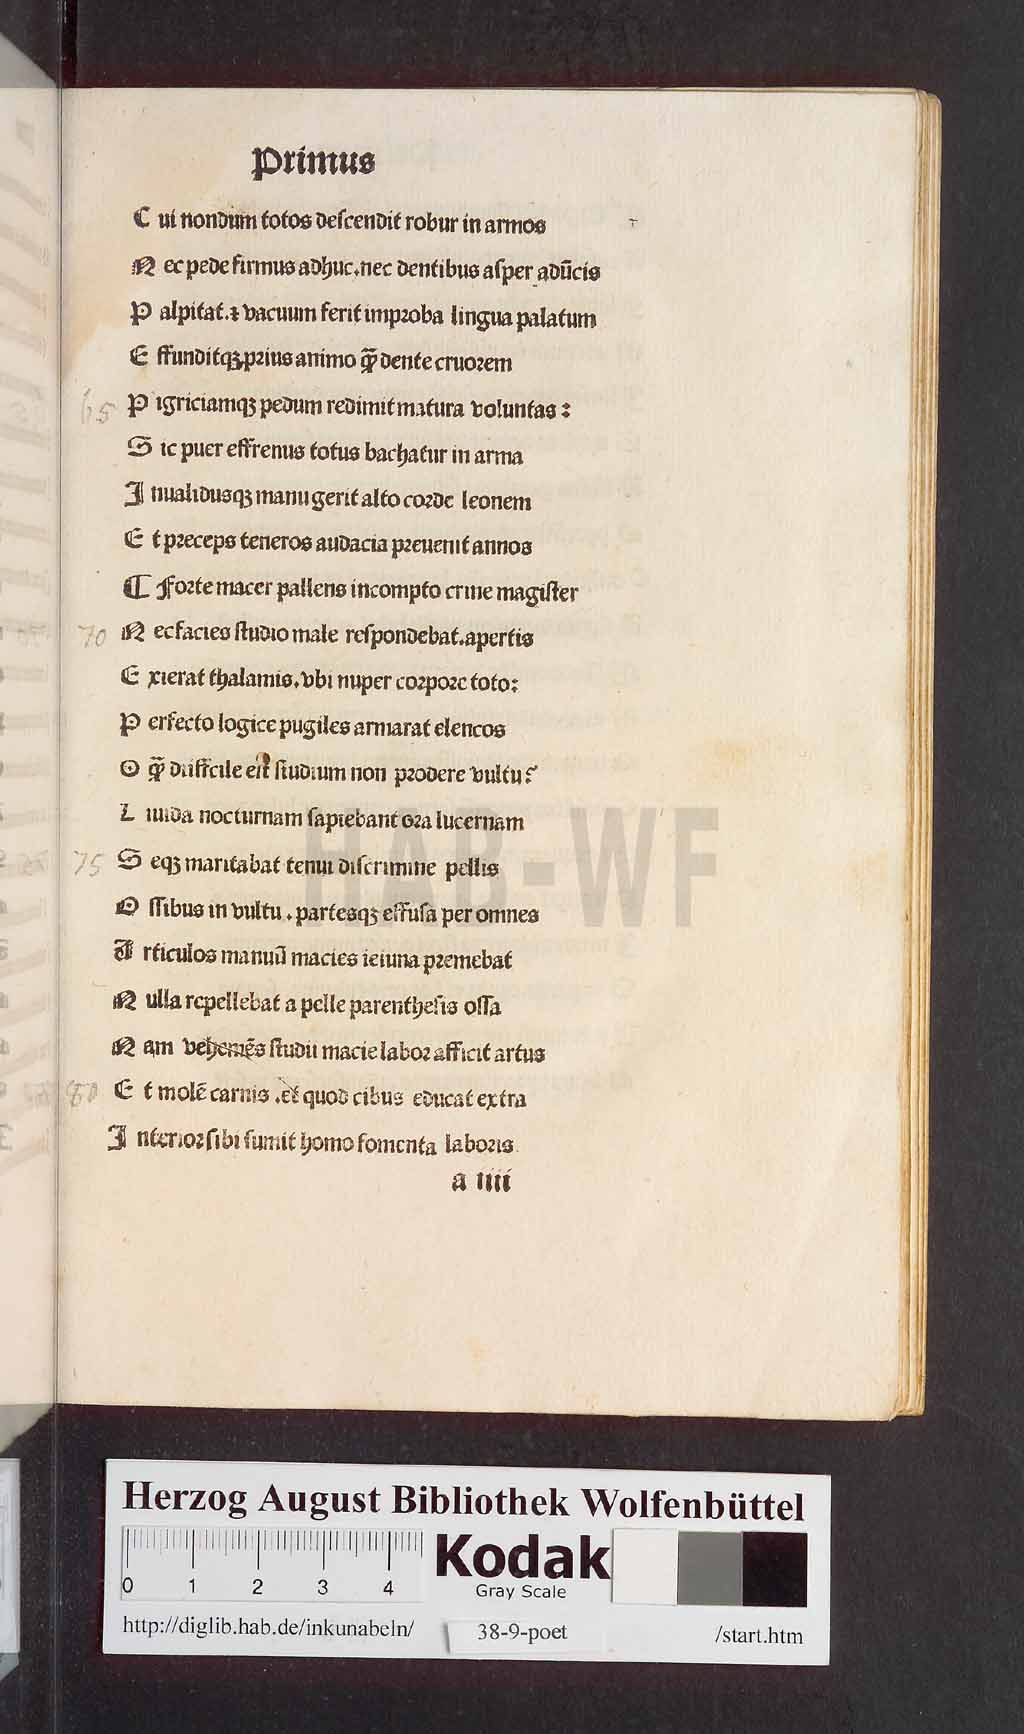 Primus
C ui nondum totos deſcendit robur in armos
N ec pede firmus adhuc.nec dentibus aſper adūcis
P alpitat.⁊ vacuum ferit improba lingua palatum
E ffunditqꝫ prius animo qꝫ̄ dente cruorem
65 P igriciamqꝫ pedum redimit matura voluntas:
S ic puer effrenus totus bachatur in arma
I nualidusqꝫ manu gerit alto corde leonem
E t preceps teneros audacia preuenit annos
¶ Forte macer pallens incompto crine magiſter
70 N ec facies ſtudio male reſpondebat.apertis
E xierat thalamis.vbi nuper corpore toto:
P erfecto logice pugiles armarat elencos
O qꝫ̄ difficile eſt ſtudium non prodere vultu?
L iuida nocturnam ſapiebant ora lucernam
75 S eqꝫ maritabat tenui diſcrimine pellis
O ſſibus in vultu.partesqꝫ effuſa per omnes
A rticulos manuū macies ieiuna premebat
N ulla repellebat a pelle parentheſis oſſa
N am vehemēs ſtudii macie labor afficit artus
80 E t molē carnis.et quod cibus educat extra
I nterior ſibi ſumit homo fomenta laboris.
a iiii
HAB-WF
Herzog August Bibliothek Wolfenbüttel
0 1 2 3 4 Kodak
Gray Scale
http://diglib.hab.de/inkunabeln/ 38-9-poet /start.htm